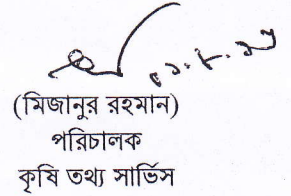 (মিজানুর রহমান)
পরিচালক
কৃষি তথ্য সার্ভিস